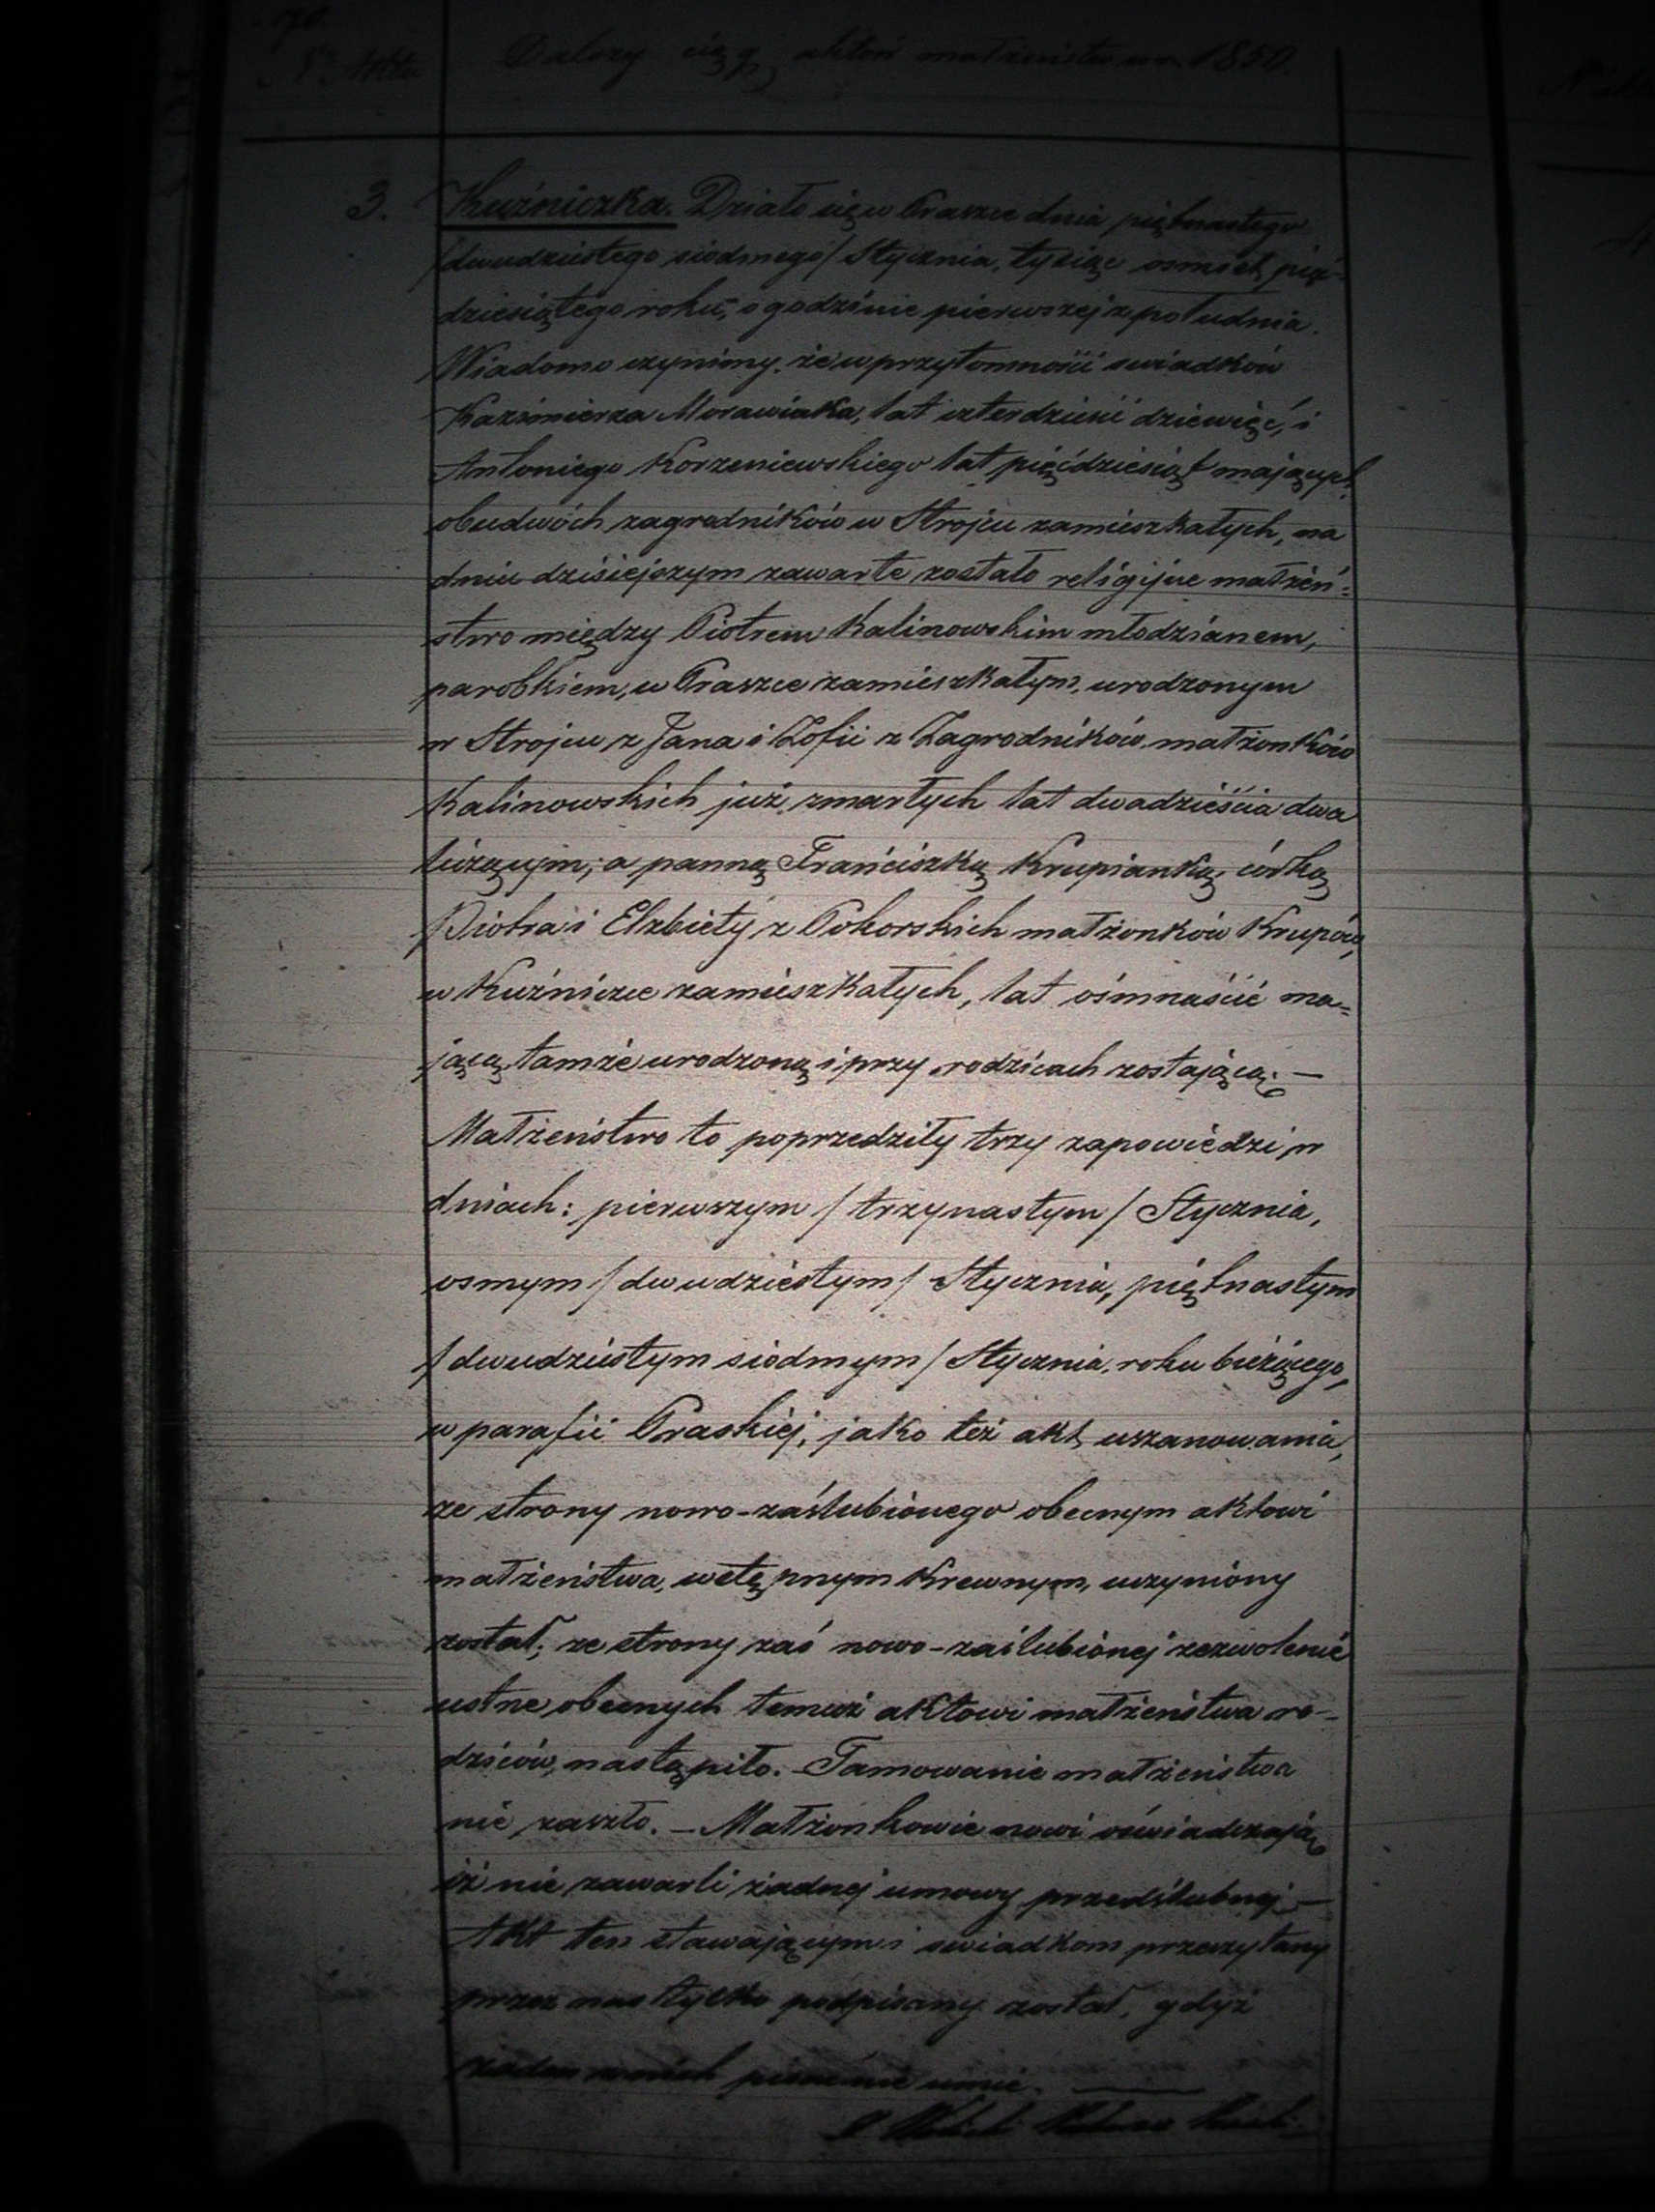 70.
Nr Aktu
Dalszy ciąg aktów małżeństw r. 1850.
3. Kuźniczka. Działo się w Praszce dnia piętnastego
/dwudziestego siódmego/ Stycznia, tysiąc osmset pię-
dziesiątego roku, o godzinie pierwszej z południa.
Wiadomo czynimy, że w przytomności swiadków
Kazimierza Morawiaka, lat czterdzieści dziewięć, i
Antoniego Korzeniewskiego lat pięćdziesiąt mających
obudwóch zagrodników w Strojcu zamieszkałych, na
dniu dzisiejszym zawarte zostało religijne małżeń-
stwo między Piotrem Kalinowskim młodzianem,
parobkiem, w Praszce zamieszkałym, urodzonym
w Strojcu z Jana i Zofii z Zagrodników małżonków
Kalinowskich już zmarłych lat dwadzieścia dwa
liczącym; a panną Franciszką Krupianką, córką
Piotra i Elżbiety z Pokorskich małżonków Krupów,
w Kuźniczce zamieszkałych, lat ośmnaście ma-
jącą, tamże urodzoną i przy rodzicach zostającą. —
Małżeństwo to poprzedziły trzy zapowiedzi w
dniach: pierwszym /trzynastym/ Stycznia,
osmym /dwudziestym/ Stycznia, piętnastym
/dwudziestym siódmym/ Stycznia, roku bieżącego,
w parafii Praskiej, jako też akt uszanowania,
ze strony nowo-zaślubionego obecnym aktowi
małżeństwa, wstępnym krewnym, uczyniony
został; ze strony zaś nowo-zaślubionej zezwolenie
ustne obecnych temuż aktowi małżeństwa ro-
dziców, nastąpiło. — Tamowanie małżeństwa
nie zaszło. — Małżonkowie nowi oświadczają
iż nie zawarli żadnej umowy przedślubnej —
Akt ten stawającym i swiadkom przeczytany
przez nas tylko podpisany został, gdyż
żaden z nich pisać nie umie. —